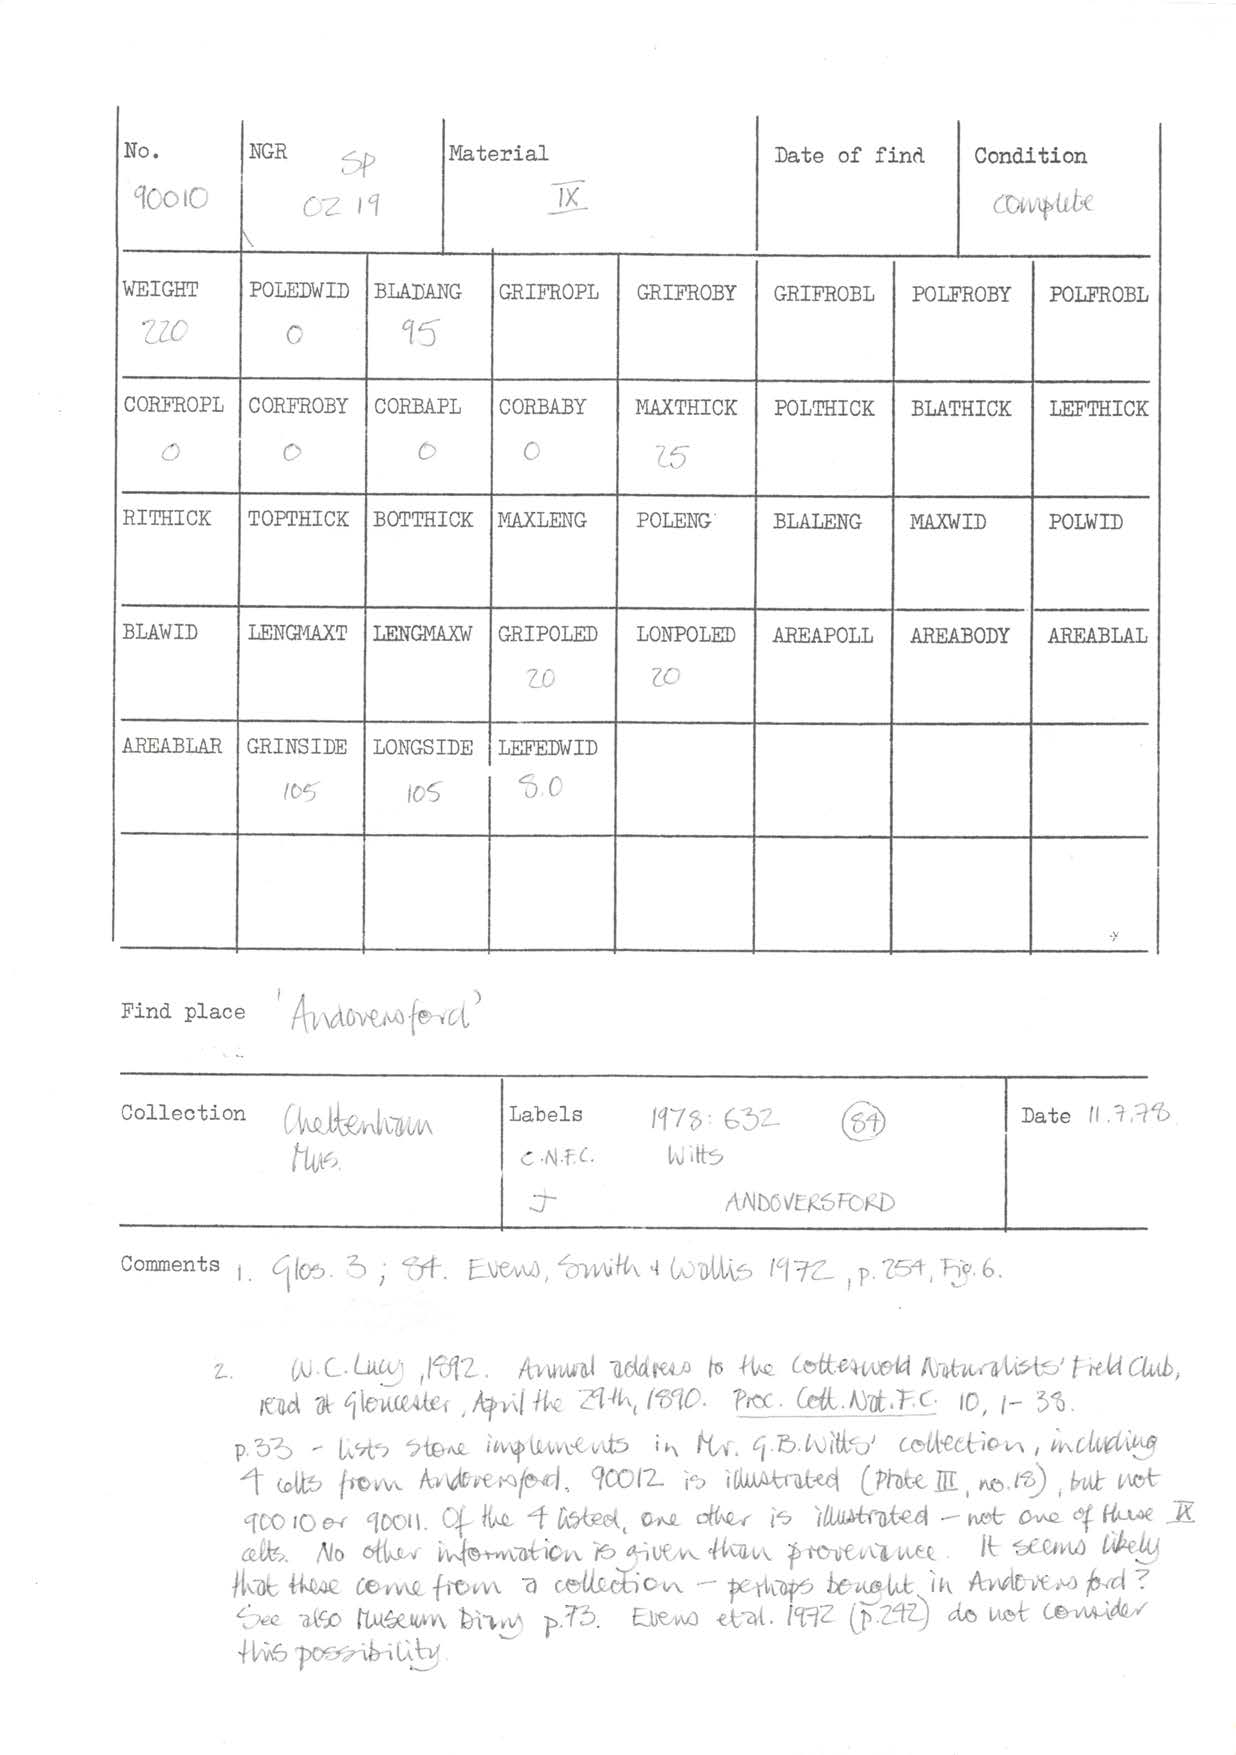 No. NGR Material Date of find Condition
SP
90010 02 19 IX complete
WEIGHT POLEDWID BLADANG GRIFROPL GRIFROBY GRIFROBL POLFROBY POLFROBL
220 0 95
CORFROPL CORFROBY CORBAPL CORBABY MAXTHICK POLTHICK BLATHICK LEFTHICK
0 0 0 0 25
RITHICK TOPTHICK BOTTHICK MAXLENG POLENG BLALENG MAXWID POLWID
BLAWID LENGMAXT LENGMAXW GRIPOLED LONPOLED AREAPOLL AREABODY AREABLAL
20 20
AREABLAR GRINSIDE LONGSIDE LEFEDWID
105 105 8.0
Find place 'Andoversford'
Collection Cheltenham Labels 1978: 632 84 Date 11.7.78
Mus. C.N.F.C. Witts
J ANDOVERSFORD
Comments 1. Glos. 3; 84. Evens, Smith & Wallis 1972, p. 254, Fig. 6.
2. W.C. Lucy, 1892. Annual address to the Cotteswold Naturalists' Field Club,
read at Gloucester, April the 29th, 1890. Proc. Cott. Nat. F.C. 10, 1-38.
p.33 - lists stone implements in Mr. G.B. Witts' collection, including
4 celts from Andoversford. 90012 is illustrated (Plate III, no.18), but not
90010 or 90011. Of the 4 listed, one other is illustrated - not one of these IX
celts. No other information is given than provenance. It seems likely
that these come from a collection - perhaps bought in Andoversford?
See also Museum Diary p.73. Evens et al. 1972 (p.242) do not consider
this possibility.